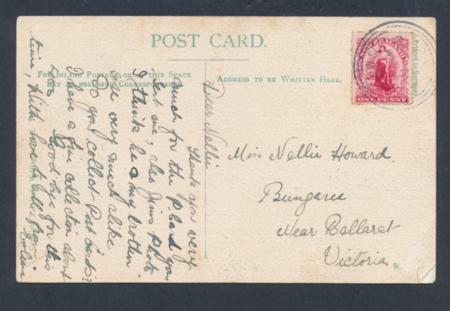 POST CARD.
FOR INLAND POSTAGE ONLY THIS SPACE
MAY BE USED FOR CORRESPONDENCE
ADDRESS TO BE WRITTEN HERE.
ONE PENNY
Dear Nellie
Thank you very
much for the P.Card you
sent me, also Jim's photo
I think he & my brother
are very much alike
Do you collect Post Cards?
I have a fine collection about
Good bye for this
time, With love to all from
Miss Nellie Howard.
Bungaree
Near Ballarat
Victoria